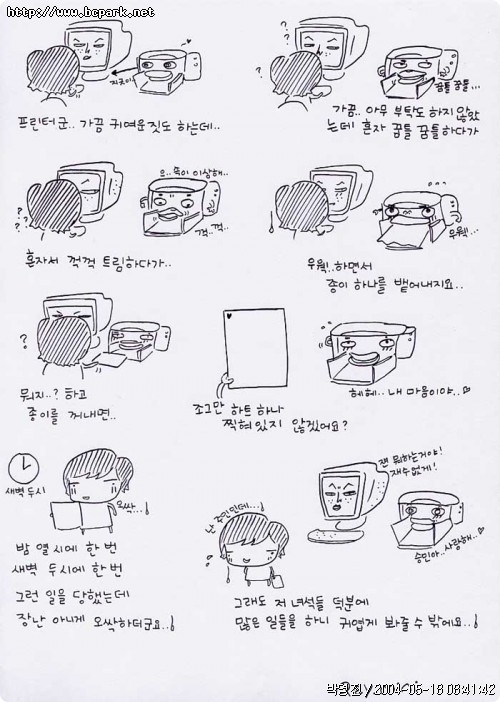 http://www.bcpark.net
지긋이
프린터군.. 가끔 귀여운짓도 하는데..
꿈틀 꿈틀...
가끔.. 아무 부탁도 하지 않았
는데 혼자 꿈틀 꿈틀하다가
으..속이 이상해..
꺽..꺽..
혼자서 꺽꺽 트림하다가..
우웩..
우웩..하면서
종이 하나를 뱉어내지요..
뭐지..? 하고
종이를 꺼내면..
헤헤..내 마음이야..♡
조그만 하트 하나
찍혀있지 않겠어요?
새벽 두시
오싹..!
밤 열시에 한 번
새벽 두시에 한 번
그런 일을 당했는데
장난 아니게 오싹하더군요..!
난 주인인데...!
쟨 뭐하는거야!
재수없게!
승민아..사랑해..♡
그래도 저 녀석들 덕분에
많은 일들을 하니 귀엽게 봐줄 수 밖에요..!
2004-05-18 08:41:42